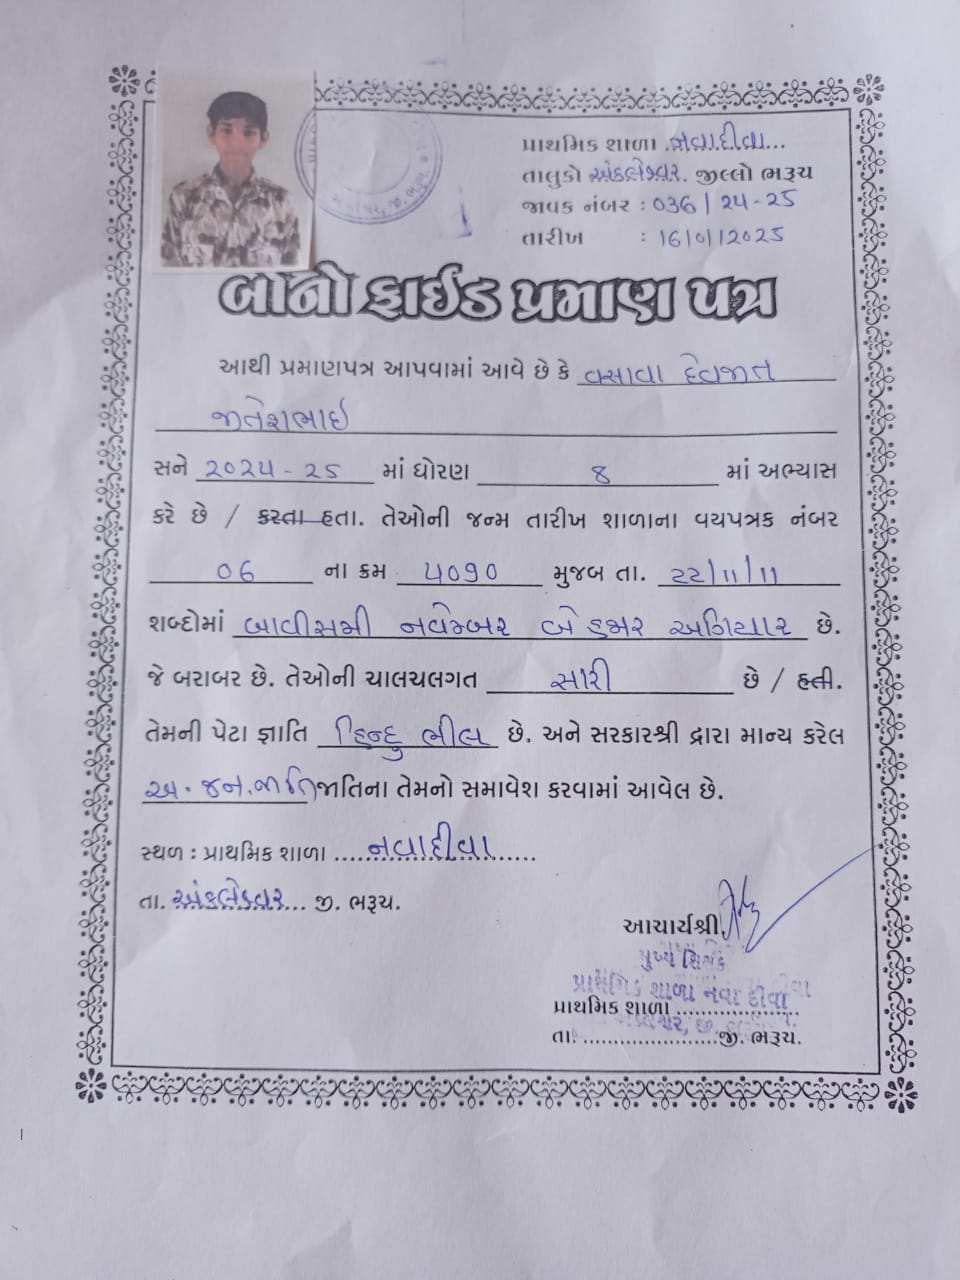 પ્રાથમિક શાળા નવાદીવા...
તાલુકો અંકલેશ્વર. જીલ્લો ભરૂચ
જાવક નંબર : 036 / 24-25
તારીખ : 16/01/2025
બોનોફાઈડ પ્રમાણ પત્ર
આથી પ્રમાણપત્ર આપવામાં આવે છે કે વસાવા દેવજીત
જીતેશભાઈ
સને ૨૦૨૪-૨૫ માં ધોરણ ૪ માં અભ્યાસ
કરે છે / કરતા હતા. તેઓની જન્મ તારીખ શાળાના વયપત્રક નંબર
06 ના ક્રમ ૫૦૧૦ મુજબ તા. ૨૨/૧૧/૧૧
શબ્દોમાં બાવીસમી નવેમ્બર બે હજાર અગિયાર છે.
જે બરાબર છે. તેઓની ચાલચલગત સારી છે / હતી.
તેમની પેટા જ્ઞાતિ હિન્દુ ભીલ છે. અને સરકારશ્રી દ્રારા માન્ય કરેલ
અ. જન.જાતિ જાતિના તેમનો સમાવેશ કરવામાં આવેલ છે.
સ્થળ : પ્રાથમિક શાળા ....નવાદીવા......
તા. અંકલેશ્વર... જી. ભરૂચ.
આચાર્યશ્રી,
મુખ્ય શિક્ષક
પ્રાથમિક શાળા નવા દીવા
પ્રાથમિક શાળા ..................
તા. ......................જી. ભરૂચ.